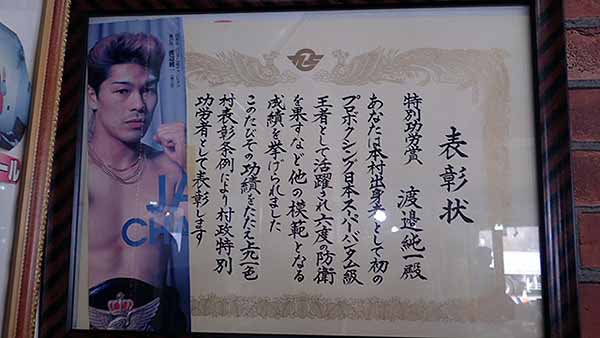 表彰状
特別功労賞
渡邉純一殿
あなたは本村出身者として初の
プロボクシング日本スーパーバンタム級
王者として活躍され六度の防衛
を果すなど他の模範となる
成績を挙げられました
このたびその功績をたたえ上九一色
村表彰条例により村政特別
功労者として表彰します
JA
CHA
ール